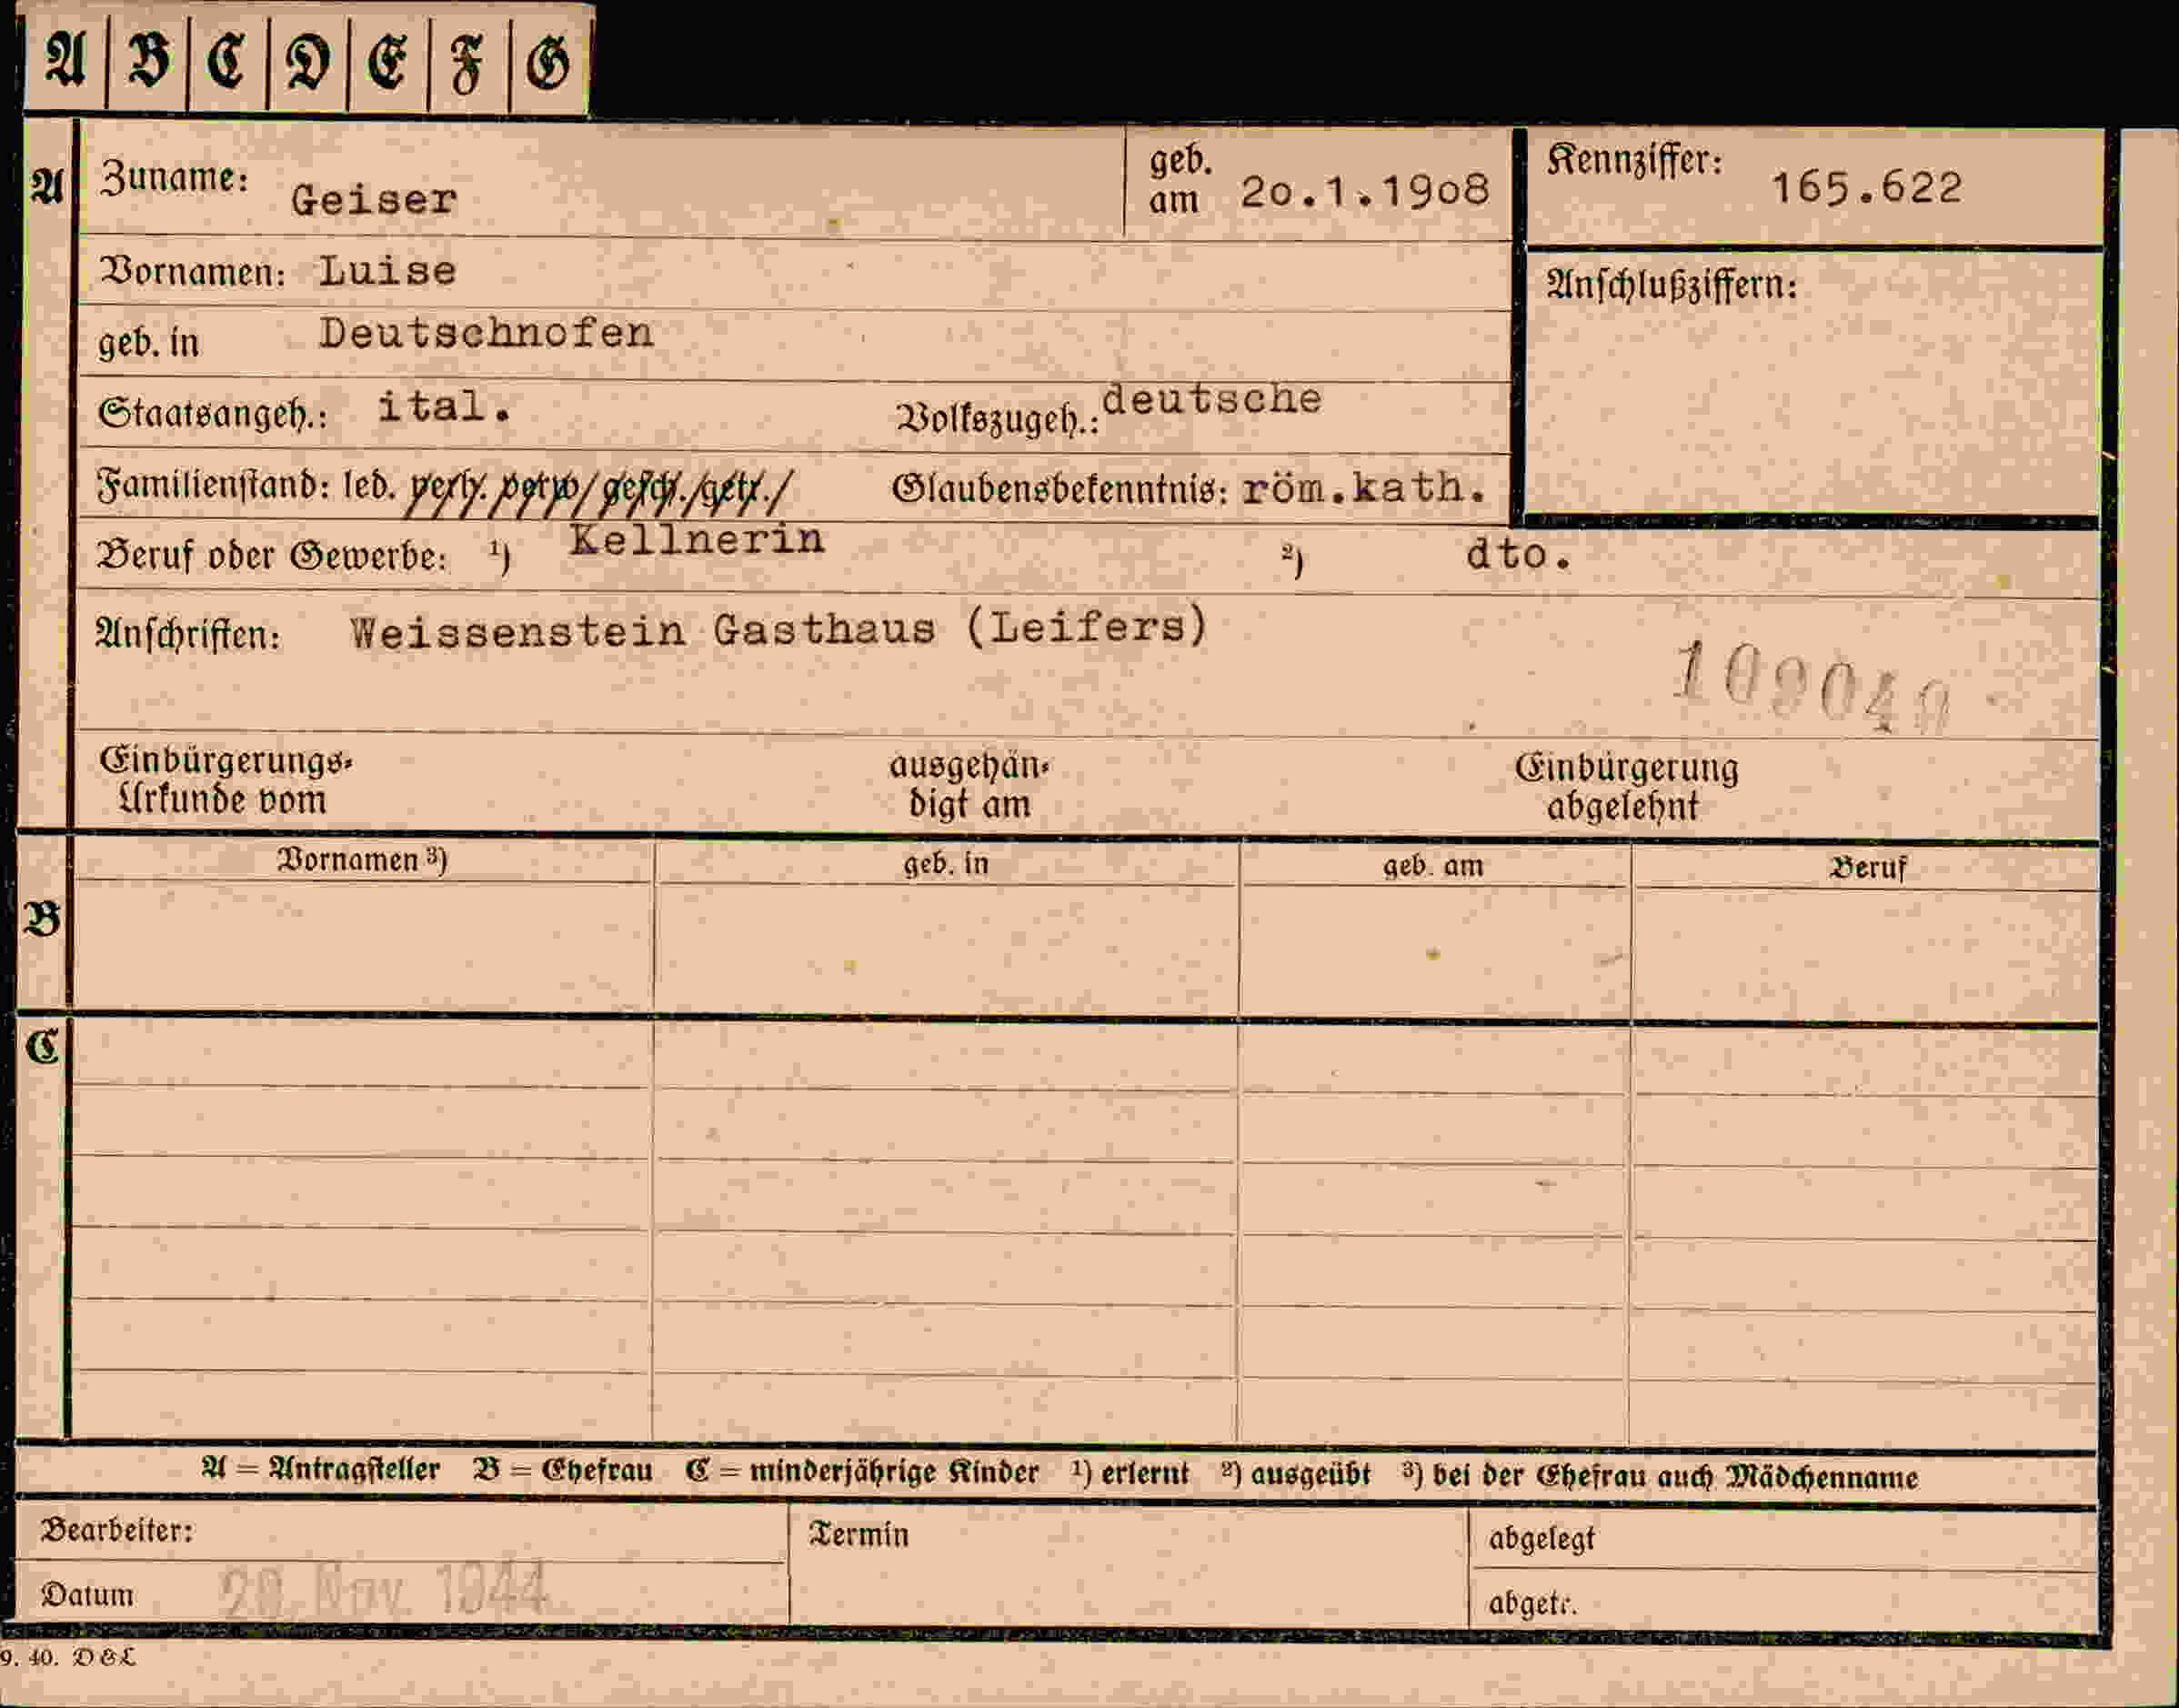 A B C D E F G
A Zuname: Geiser geb. am 20.1.1908 Kennziffer: 165.622
Vornamen: Luise Anschlußziffern:
geb. in Deutschnofen
Staatsangeh.: ital. Volkszugeh.: deutsche
Familienstand: led. verh. verw. gesch. getr. Glaubensbekenntnis: röm.kath.
Beruf oder Gewerbe: ¹) Kellnerin ²) dto.
Anschriften: Weissenstein Gasthaus (Leifers)
Einbürgerungs- ausgehän- Einbürgerung
Urkunde vom digt am abgelehnt
Vornamen ³) geb. in geb. am Beruf
B
C
A = Antragsteller B = Ehefrau C = minderjährige Kinder ¹) erlernt ²) ausgeübt ³) bei der Ehefrau auch Mädchenname
Bearbeiter: Termin abgelegt
Datum Nov 1944 abgetr.
9. 40. D&L